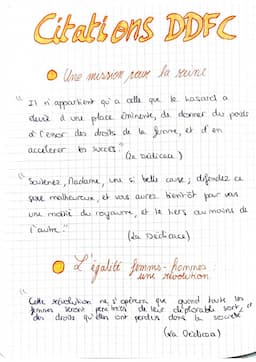 Citations DDFC
Une mission pour la reine
"Il n'appartient qu'a celle que le hasard a
élevé à une place éminente, de donner du poids
à l'essor des droits de la femme, et d'en
accelerer le succès." (La Dédicace)
"Soutenez, Madame, une si belle cause; défendez ce
sexe malheureux, et vous aurez bientôt pour vous
une moitié du royaume, et le tiers au moins de
l'autre." (La Dédicace)
L'égalité femme-hommes :
une révolution
"Cette révolution ne s'opérera que quand toute les
femmes seront pénétrées de leur déplorable sort, et
des droits qu'elles ont perdus dans la société"
(La Dédicace)